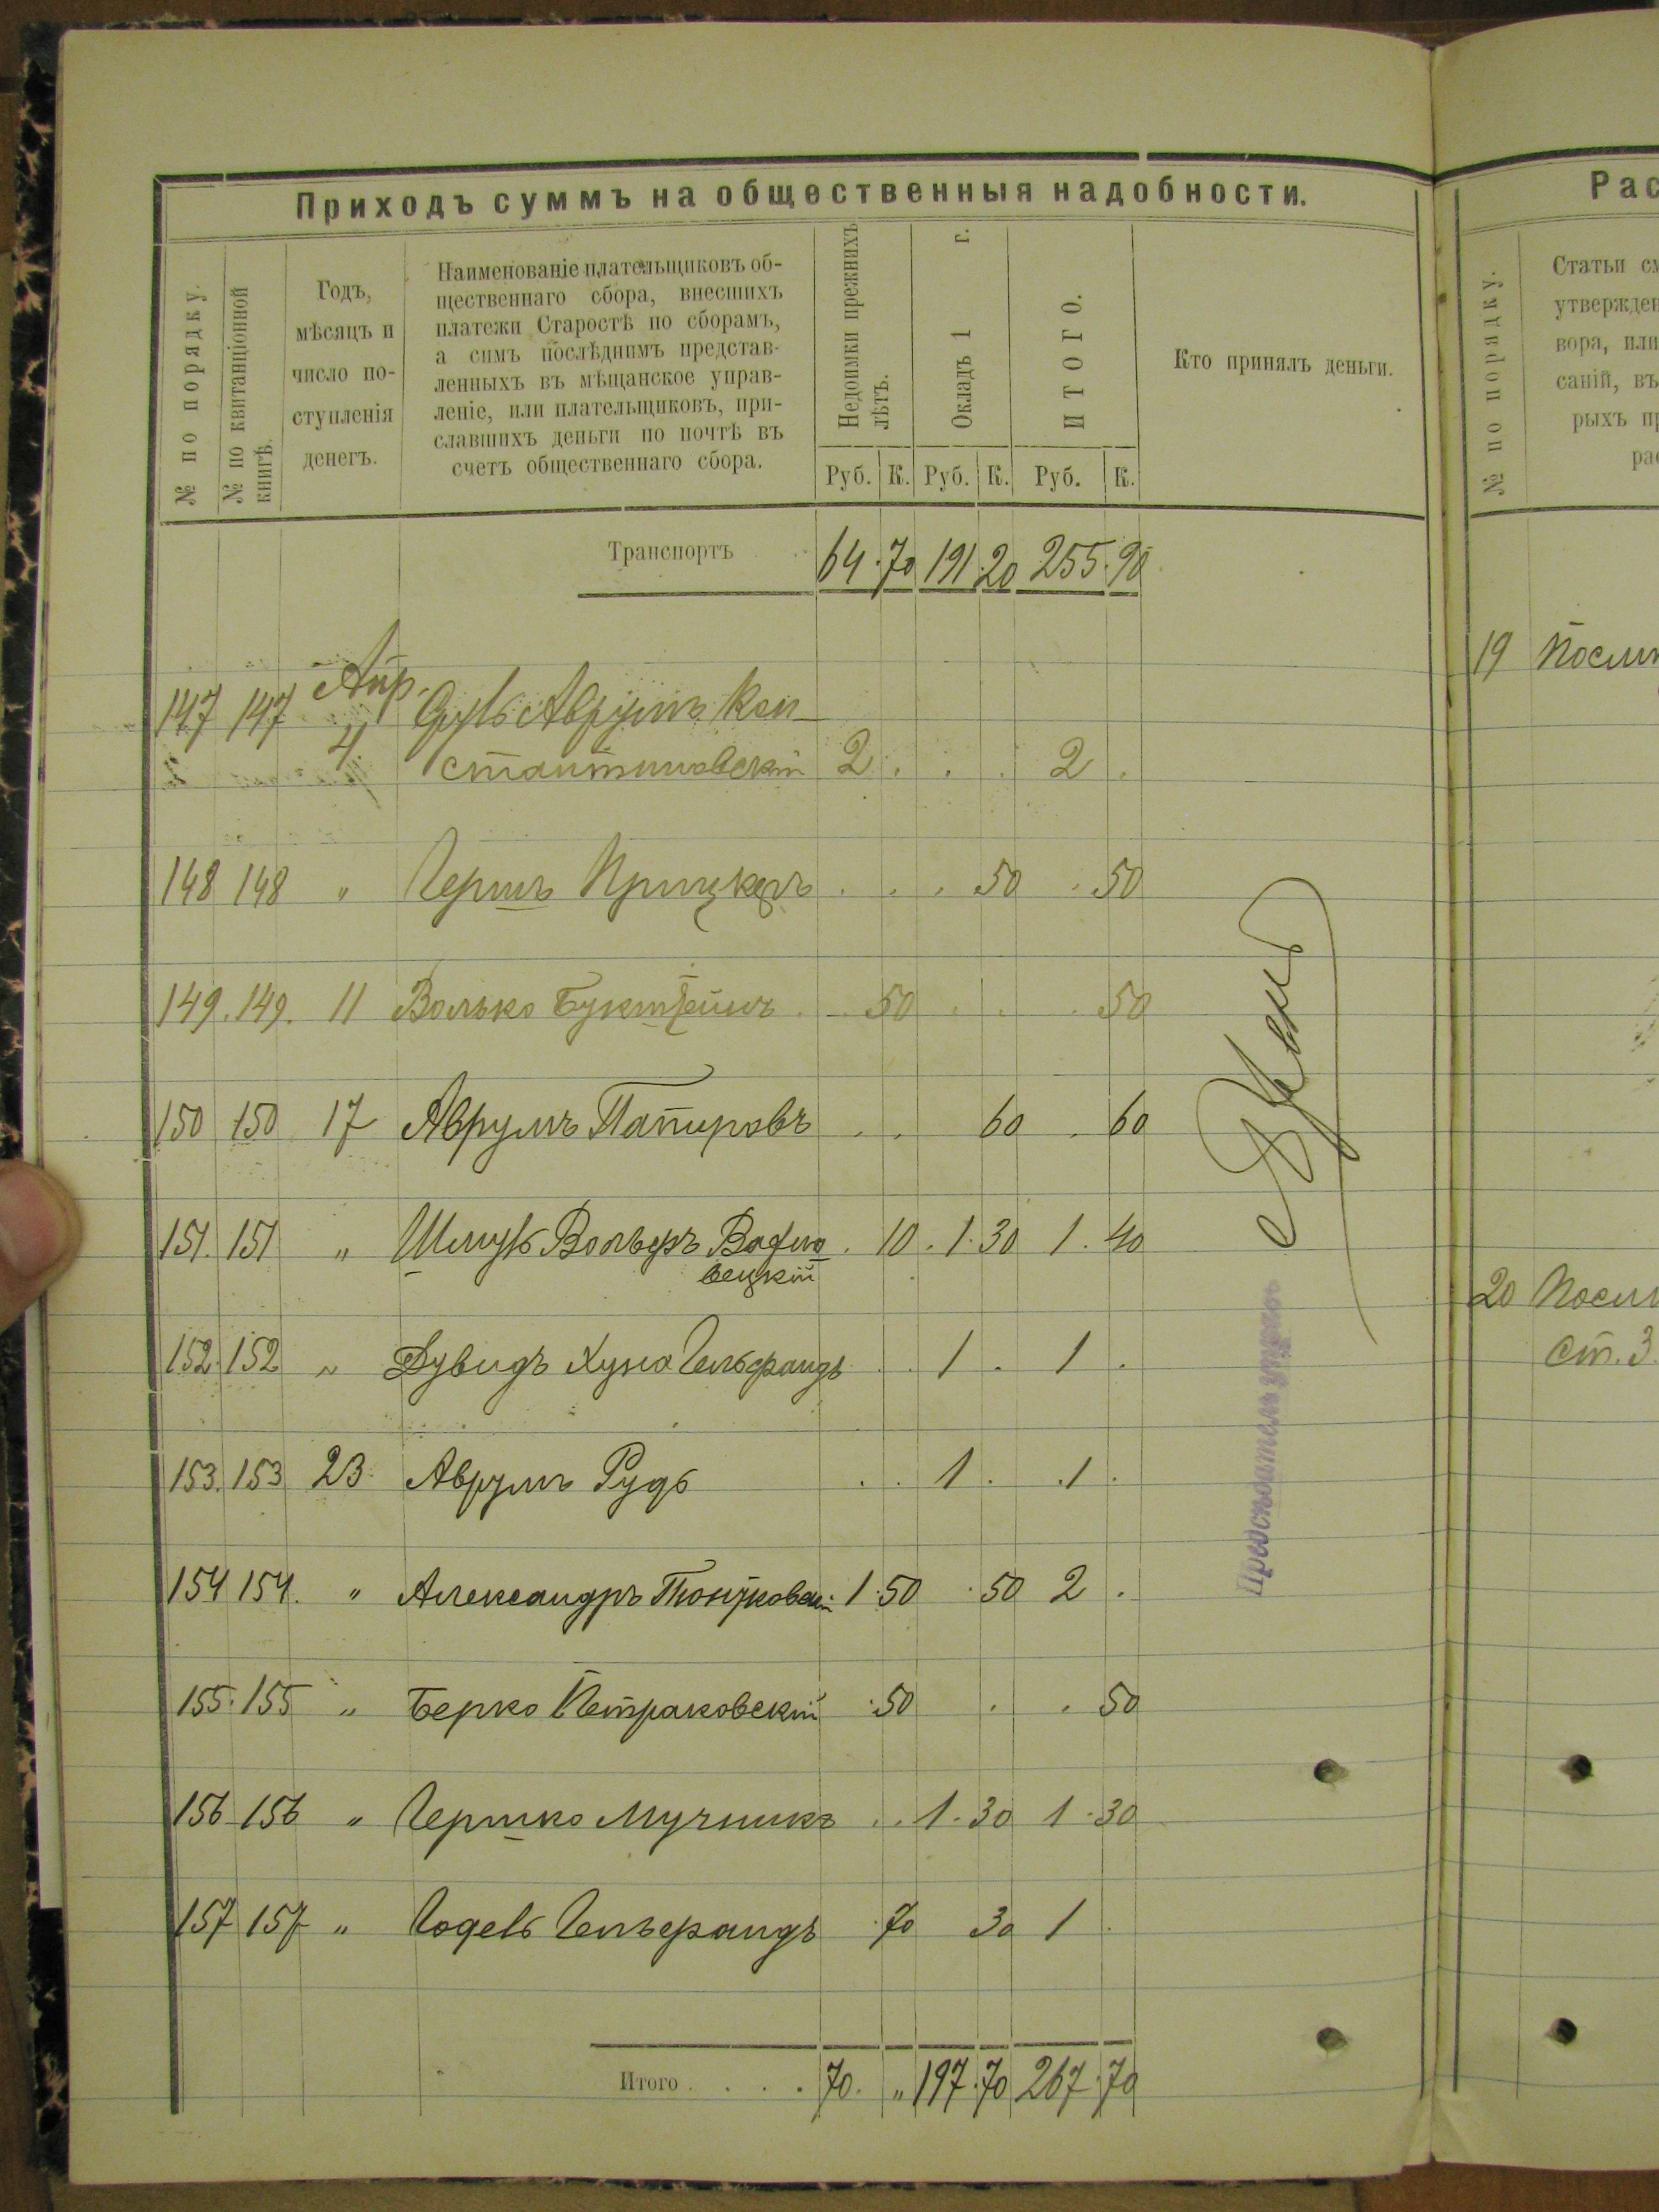 Приходъ суммъ на общественныя надобности.
№ по порядку.
№ по квитанціонной книгѣ.
Годъ,
мѣсяцъ и
число по-
ступленія
денегъ.
Наименованіе плательщиковъ об-
щественнаго сбора, внесшихъ
платежи Старостѣ по сборамъ,
а симъ послѣднимъ представ-
ленныхъ въ мѣщанское управ-
леніе, или плательщиковъ, при-
славшихъ деньги по почтѣ въ
счетъ общественнаго сбора.
Недоимки прежнихъ
лѣтъ.
Окладъ 1 г.
ИТОГО.
Кто принялъ деньги.
Руб. К. Руб. К. Руб. К.
Транспортъ 64.70 191.20 255.90
147 147 Апр. Аврумъ Кон-
4 стантиновскій 2 . . . 2 .
148 148 " Гершъ Прицкеръ . . . 50 . 50
149. 149. 11 Волько Букштейнъ . . 50 . . . 50
150 150 17 Аврумъ Папировъ . . 60 . 60
151. 151 " Шмуль Вольфъ
вецкій . 10 . 1.30 1.40
152. 152 " Дувидъ Хуна Гельфандъ . . 1 . 1 .
153. 153 23 Аврумъ Рудь . . 1 . . 1 .
154 154. " Александръ 1.50 . 50 2 .
155. 155 " Берко Петраковскій . 50 . . 50
156 156 " Гершко Мучникъ . . 1.30 1.30
157 157 " Годель Гельфандъ . 70 30 1 .
Итого . . . . 70. " 197.70 267.70
Предсѣдатель управы
Рас
№ по порядку.
Статьи су
утвержден
вора, или
саній, въ
рыхъ пр
рас
19
20
ст. 3.